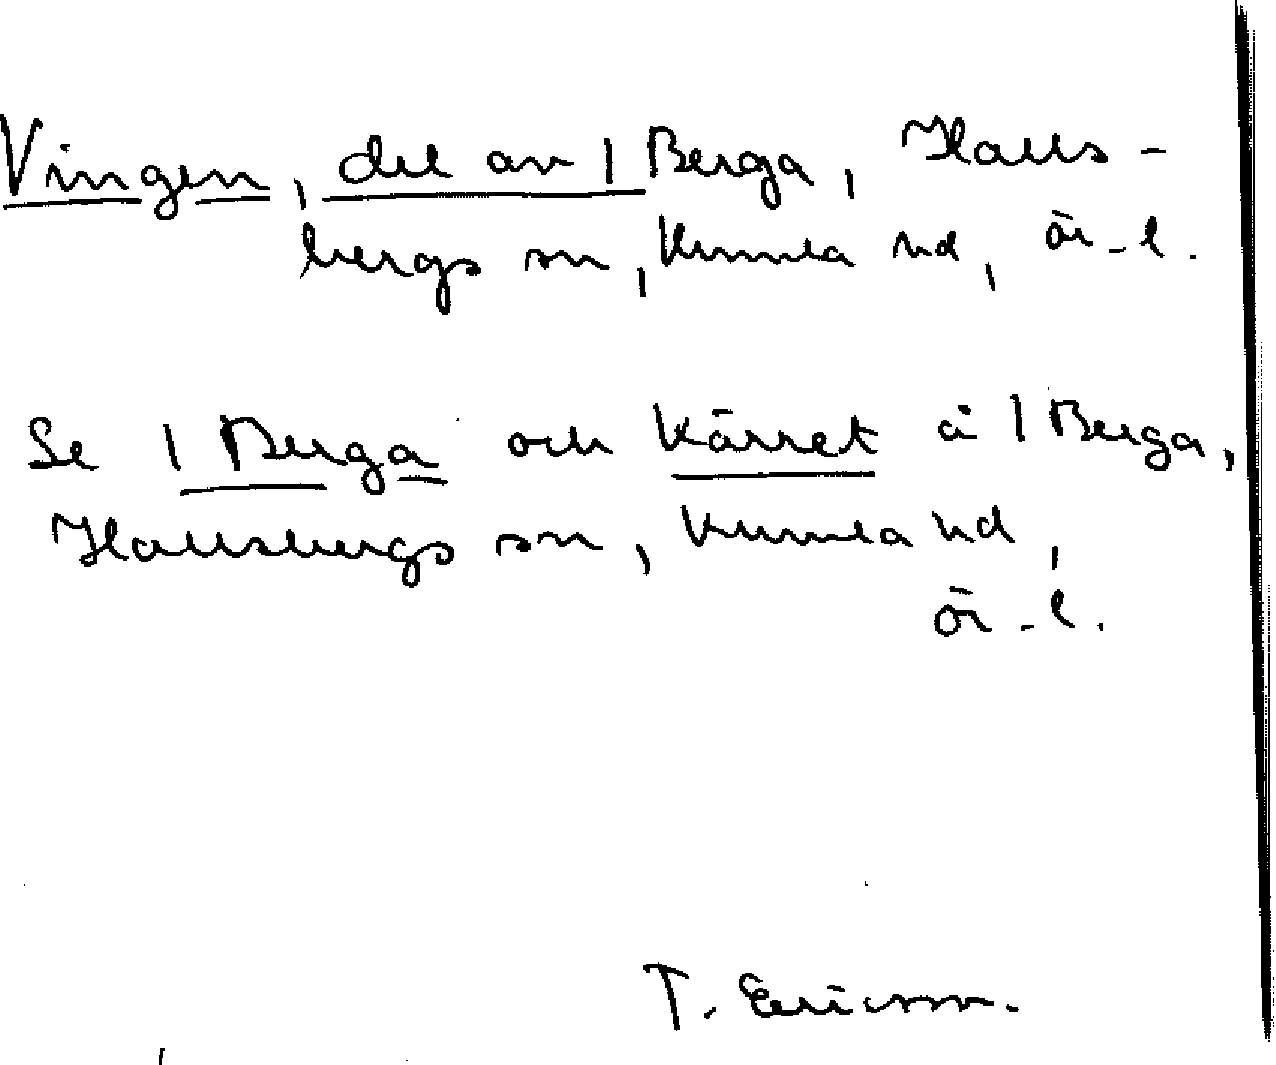 Vingen, del av 1 Berga, Halls-
bergs sn, Kumla hd, Ör-l.
Se 1 Berga och Kärret å 1 Berga,
Hallsbergs sn, Kumla hd,
Ör-l.
T. Ericsson.